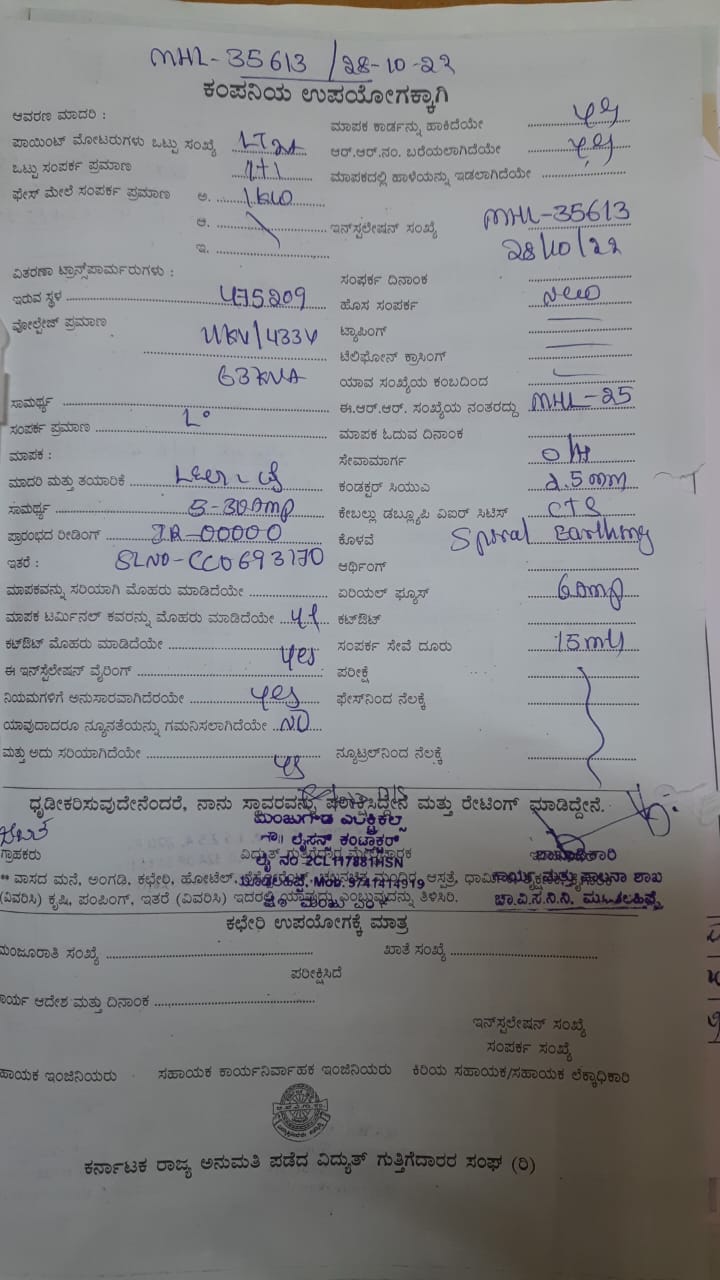 MHL-35613 /28-10-22
ಕಂಪನಿಯ ಉಪಯೋಗಕ್ಕಾಗಿ
ಆವರಣ ಮಾದರಿ :
ಮಾಪಕ ಕಾರ್ಡನ್ನು ಹಾಕಿದೆಯೇ yes
ಪಾಯಿಂಟ್ ಮೋಟರುಗಳು ಒಟ್ಟು ಸಂಖ್ಯೆ
ಆರ್.ಆರ್.ನಂ. ಬರೆಯಲಾಗಿದೆಯೇ yes
ಒಟ್ಟು ಸಂಪರ್ಕ ಪ್ರಮಾಣ 1+1
ಮಾಪಕದಲ್ಲಿ ಹಾಳೆಯನ್ನು ಇಡಲಾಗಿದೆಯೇ
ಫೇಸ್ ಮೇಲೆ ಸಂಪರ್ಕ ಪ್ರಮಾಣ ಅ. 1kw
ಆ.
ಇನ್‌ಸ್ಟಲೇಷನ್ ಸಂಖ್ಯೆ MHL-35613
ಇ.
28/10/22
ವಿತರಣಾ ಟ್ರಾನ್ಸ್‌ಪಾರ್ಮರುಗಳು :
ಸಂಪರ್ಕ ದಿನಾಂಕ
ಇರುವ ಸ್ಥಳ 475209
ಹೊಸ ಸಂಪರ್ಕ New
ವೋಲ್ಟೇಜ್ ಪ್ರಮಾಣ 11KV/433V
ಟ್ಯಾಪಿಂಗ್
ಟೆಲಿಫೋನ್ ಕ್ರಾಸಿಂಗ್
63KVA
ಯಾವ ಸಂಖ್ಯೆಯ ಕಂಬದಿಂದ
ಸಾಮರ್ಥ್ಯ
ಈ.ಆರ್.ಆರ್. ಸಂಖ್ಯೆಯ ನಂತರದ್ದು MHL-25
ಸಂಪರ್ಕ ಪ್ರಮಾಣ
ಮಾಪಕ ಓದುವ ದಿನಾಂಕ
ಮಾಪಕ :
ಸೇವಾಮಾರ್ಗ O/H
ಮಾದರಿ ಮತ್ತು ತಯಾರಿಕೆ
ಕಂಡಕ್ಟರ್ ಸಿಯುಎ 2.5mm
ಸಾಮರ್ಥ್ಯ 5-30Amp
ಕೇಬಲ್ಲು ಡಬ್ಲ್ಯೂಪಿ ವಿಐಆರ್ ಸಿಟಿಸ್ CTS
ಪ್ರಾರಂಭದ ರೀಡಿಂಗ್ IR-00000
ಕೊಳವೆ Spiral Earthing
ಇತರೆ : SLNO-CC0693170
ಆರ್ಥಿಂಗ್
ಮಾಪಕವನ್ನು ಸರಿಯಾಗಿ ಮೊಹರು ಮಾಡಿದೆಯೇ
ಏರಿಯಲ್ ಫ್ಯೂಸ್ 6Amp
ಮಾಪಕ ಟರ್ಮಿನಲ್ ಕವರನ್ನು ಮೊಹರು ಮಾಡಿದೆಯೇ yes
ಕಟ್‌ಔಟ್
ಕಟ್‌ಔಟ್ ಮೊಹರು ಮಾಡಿದೆಯೇ yes
ಸಂಪರ್ಕ ಸೇವೆ ದೂರು 15mts
ಈ ಇನ್‌ಸ್ಟೆಲೇಷನ್ ವೈರಿಂಗ್
ಪರೀಕ್ಷೆ
ನಿಯಮಗಳಿಗೆ ಅನುಸಾರವಾಗಿದೆರಯೇ yes
ಫೇಸ್‌ನಿಂದ ನೆಲಕ್ಕೆ
ಯಾವುದಾದರೂ ನ್ಯೂನತೆಯನ್ನು ಗಮನಿಸಲಾಗಿದೆಯೇ NO
ಮತ್ತು ಅದು ಸರಿಯಾಗಿದೆಯೇ yes
ನ್ಯೂಟ್ರಲ್‌ನಿಂದ ನೆಲಕ್ಕೆ
ಧೃಡೀಕರಿಸುವುದೇನೆಂದರೆ, ನಾನು ಸ್ಥಾವರವನ್ನು ಪರೀಕ್ಷಿಸಿದ್ದೇನೆ ಮತ್ತು ರೇಟಿಂಗ್ ಮಾಡಿದ್ದೇನೆ.
ಮಂಜುಗೌಡ ಎಲೆಕ್ಟ್ರಿಕಲ್ಸ್
ಲೈಸನ್ಸ್ ಕಂಟ್ರಾಕ್ಟರ್
ಗ್ರಾಹಕರು
ವಿದ್ಯುತ್ ಗುತ್ತಿಗೆದಾರ
ಲೈ ನಂ 2CL117881HSN
Mob: 9741414919
** ವಾಸದ ಮನೆ, ಅಂಗಡಿ, ಕಛೇರಿ, ಹೋಟೆಲ್, ಆಸ್ಪತ್ರೆ,
ಕಾರ್ಯ ಮತ್ತು ಪಾಲನಾ ಶಾಖೆ
(ವಿವರಿಸಿ) ಕೃಷಿ, ಪಂಪಿಂಗ್, ಇತರೆ (ವಿವರಿಸಿ) ಇದರಲ್ಲಿ ಯಾವುದು ಎಂಬುವುದನ್ನು ತಿಳಿಸಿರಿ.
ಚಾ.ವಿ.ಸ.ನಿ.ನಿ.
ಕಛೇರಿ ಉಪಯೋಗಕ್ಕೆ ಮಾತ್ರ
ಮಂಜೂರಾತಿ ಸಂಖ್ಯೆ
ಖಾತೆ ಸಂಖ್ಯೆ
ಪರೀಕ್ಷಿಸಿದೆ
ಕಾರ್ಯ ಆದೇಶ ಮತ್ತು ದಿನಾಂಕ
ಇನ್‌ಸ್ಟಲೇಷನ್ ಸಂಖ್ಯೆ
ಸಂಪರ್ಕ ಸಂಖ್ಯೆ
ಸಹಾಯಕ ಇಂಜಿನಿಯರು ಸಹಾಯಕ ಕಾರ್ಯನಿರ್ವಾಹಕ ಇಂಜಿನಿಯರು ಕಿರಿಯ ಸಹಾಯಕ/ಸಹಾಯಕ ಲೆಕ್ಕಾಧಿಕಾರಿ
ಕರ್ನಾಟಕ ರಾಜ್ಯ ಅನುಮತಿ ಪಡೆದ ವಿದ್ಯುತ್ ಗುತ್ತಿಗೆದಾರರ ಸಂಘ (ರಿ)